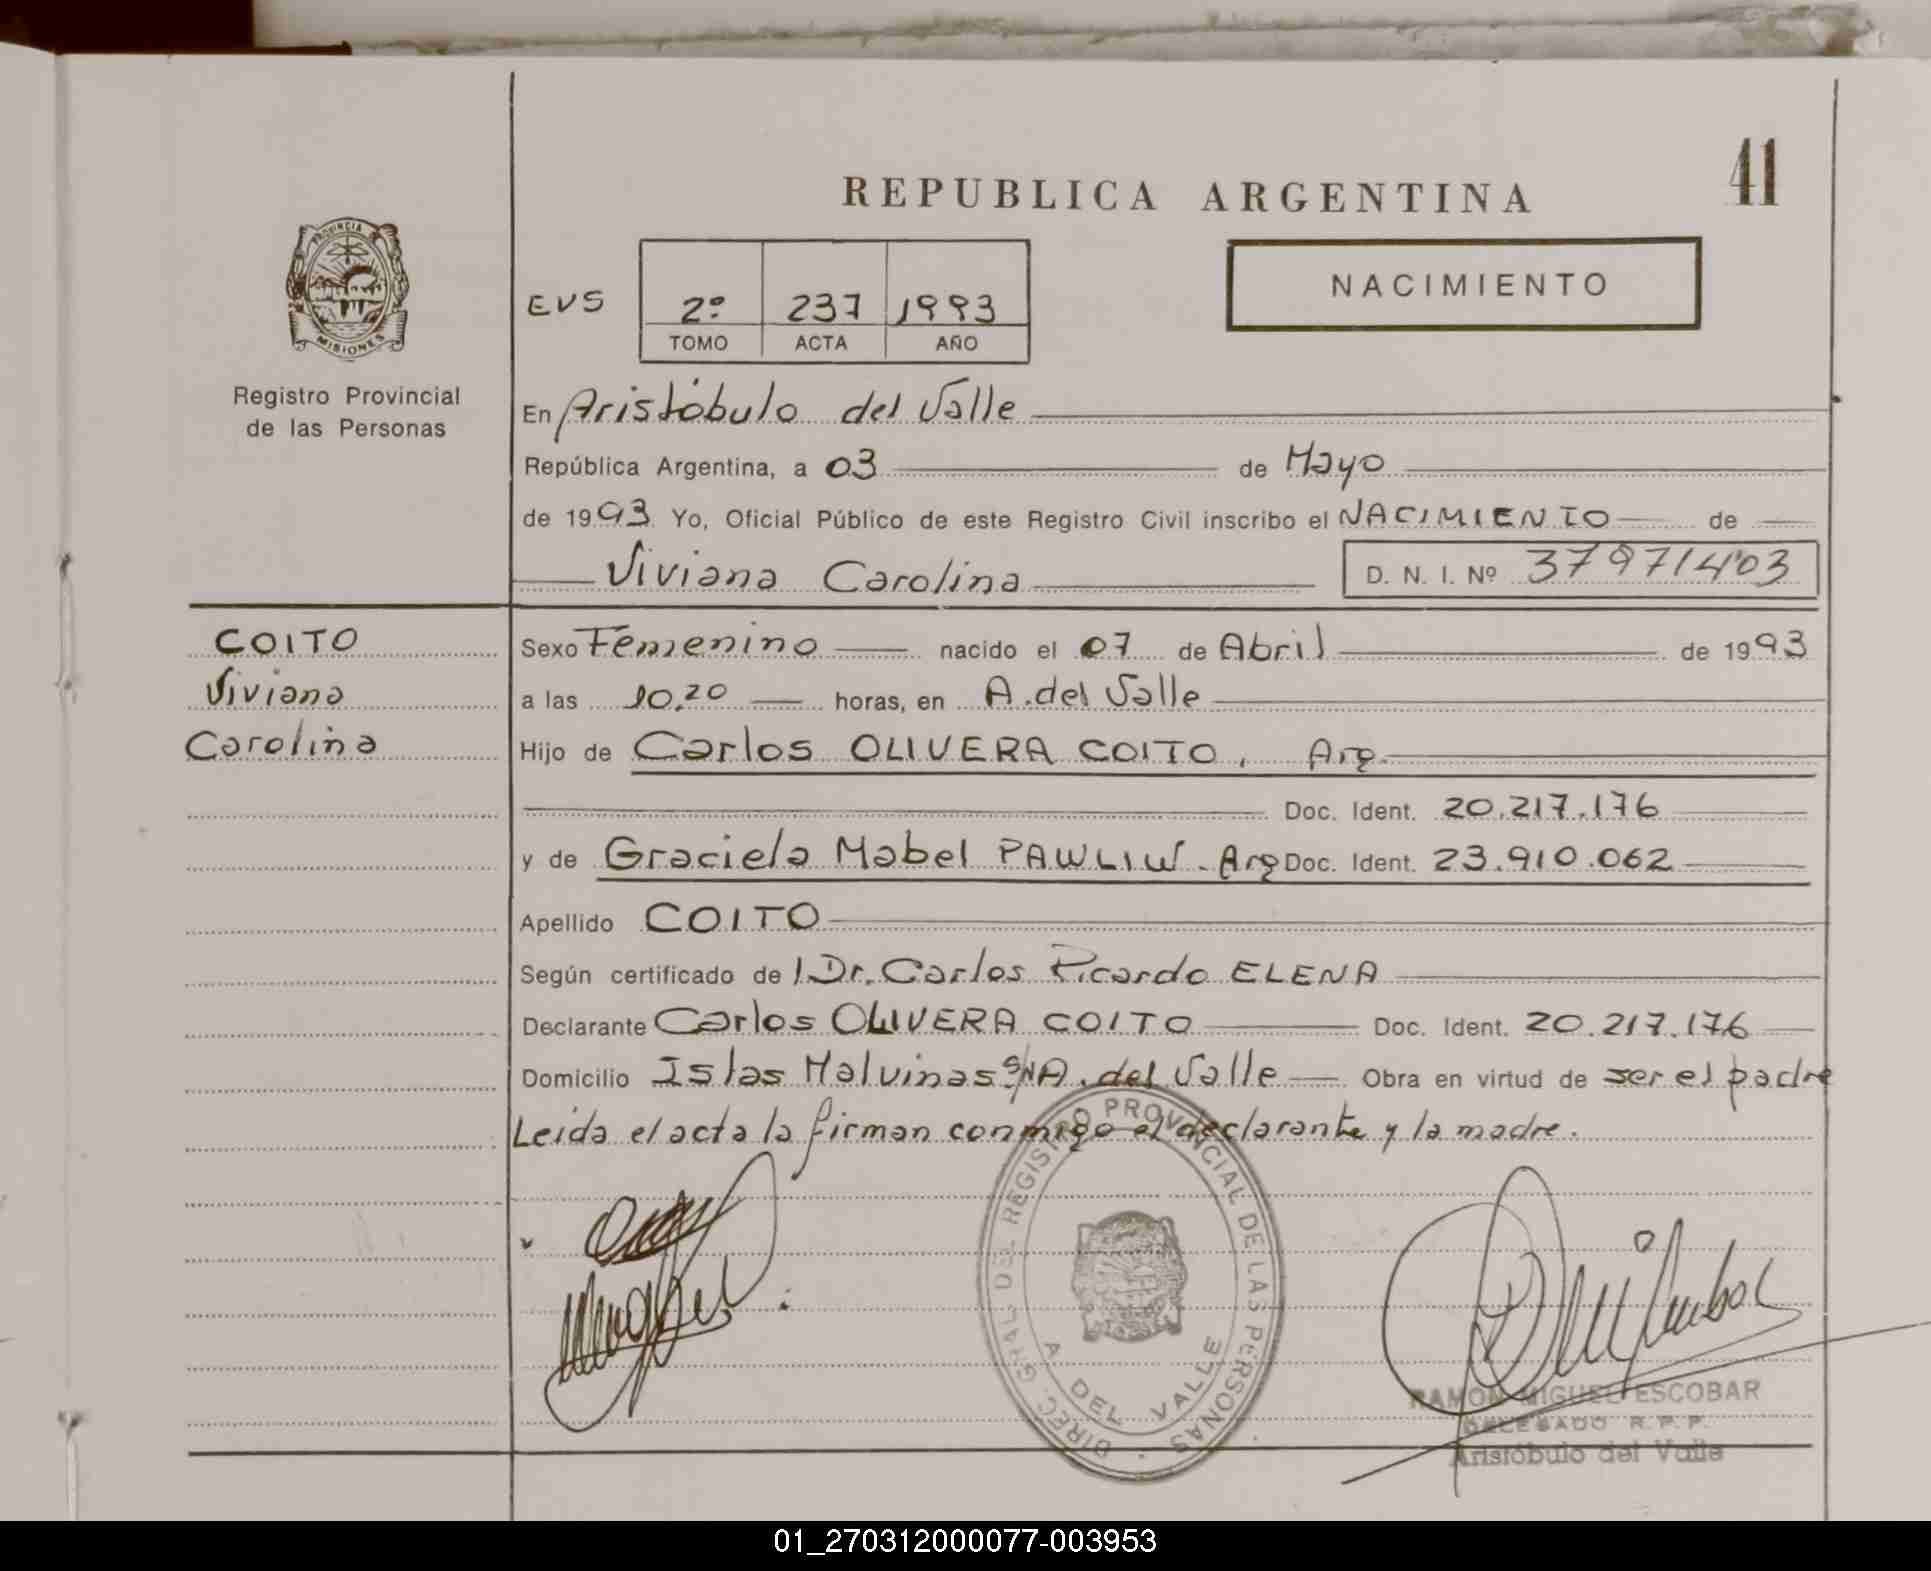 41
REPUBLICA ARGENTINA
PROVINCIA DE
MISIONES
NACIMIENTO
EVS 2º 237 1993
TOMO ACTA AÑO
Registro Provincial
de las Personas
En Aristóbulo del Valle
República Argentina, a 03 de Mayo
de 1993 Yo, Oficial Público de este Registro Civil inscribo el NACIMIENTO de
Viviana Carolina D. N. I. Nº 37971403
COITO
Viviana
Carolina
Sexo Femenino nacido el 07 de Abril de 1993
a las 10,20 horas, en A. del Valle
Hijo de Carlos OLIVERA COITO, Arg.
Doc. Ident. 20.217.176
y de Graciela Mabel PAWLIW. Arg Doc. Ident. 23.910.062
Apellido COITO
Según certificado de l Dr. Carlos Ricardo ELENA
Declarante Carlos OLIVERA COITO Doc. Ident. 20.217.176
Domicilio Islas Malvinas S/N A. del Valle Obra en virtud de ser el padre
Leida el acta la firman conmigo el declarante y la madre.
DIREC. GRAL. DEL REGISTRO PROVINCIAL DE LAS PERSONAS
A DEL VALLE
RAMON MIGUEL ESCOBAR
DELEGADO R. P. P.
Aristóbulo del Valle
01_270312000077-003953